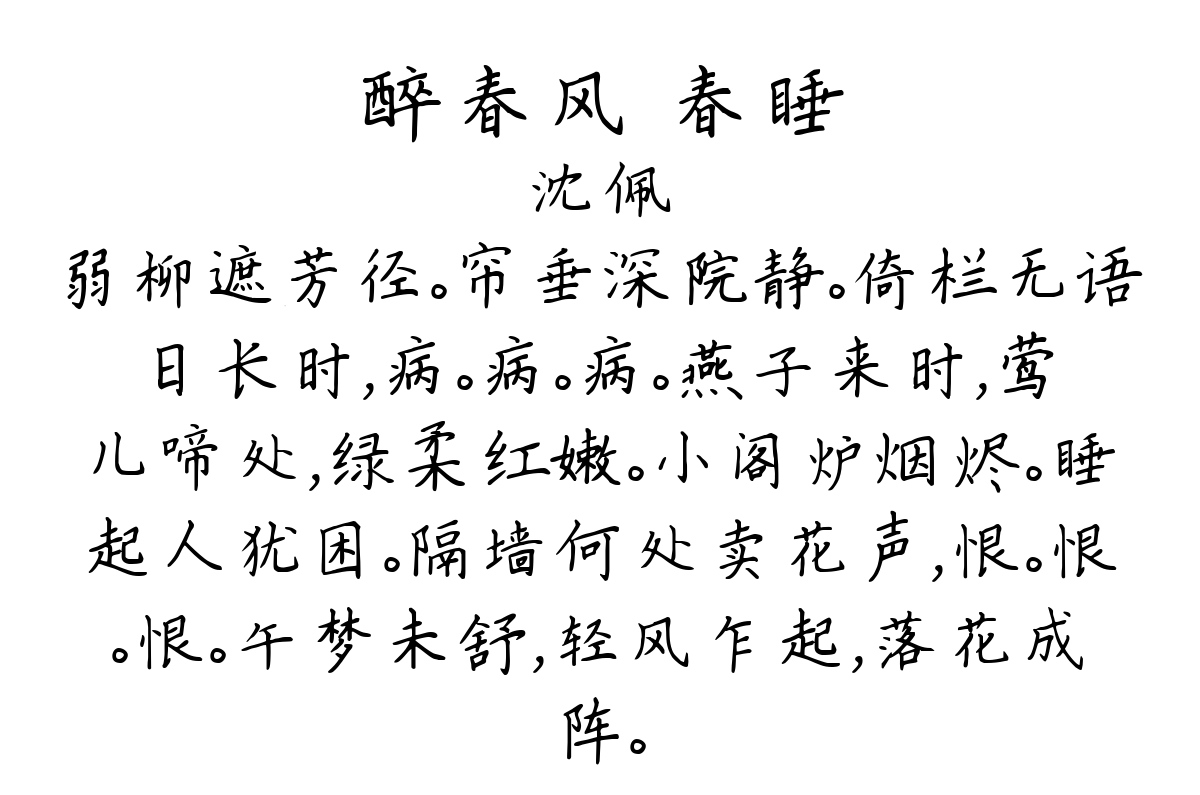 醉春风 春睡
沈佩
弱柳遮芳径。帘垂深院静。倚栏无语
日长时,病。病。病。燕子来时,莺
儿啼处,绿柔红嫩。小阁炉烟烬。睡
起人犹困。隔墙何处卖花声,恨。恨
。恨。午梦未舒,轻风乍起,落花成
阵。